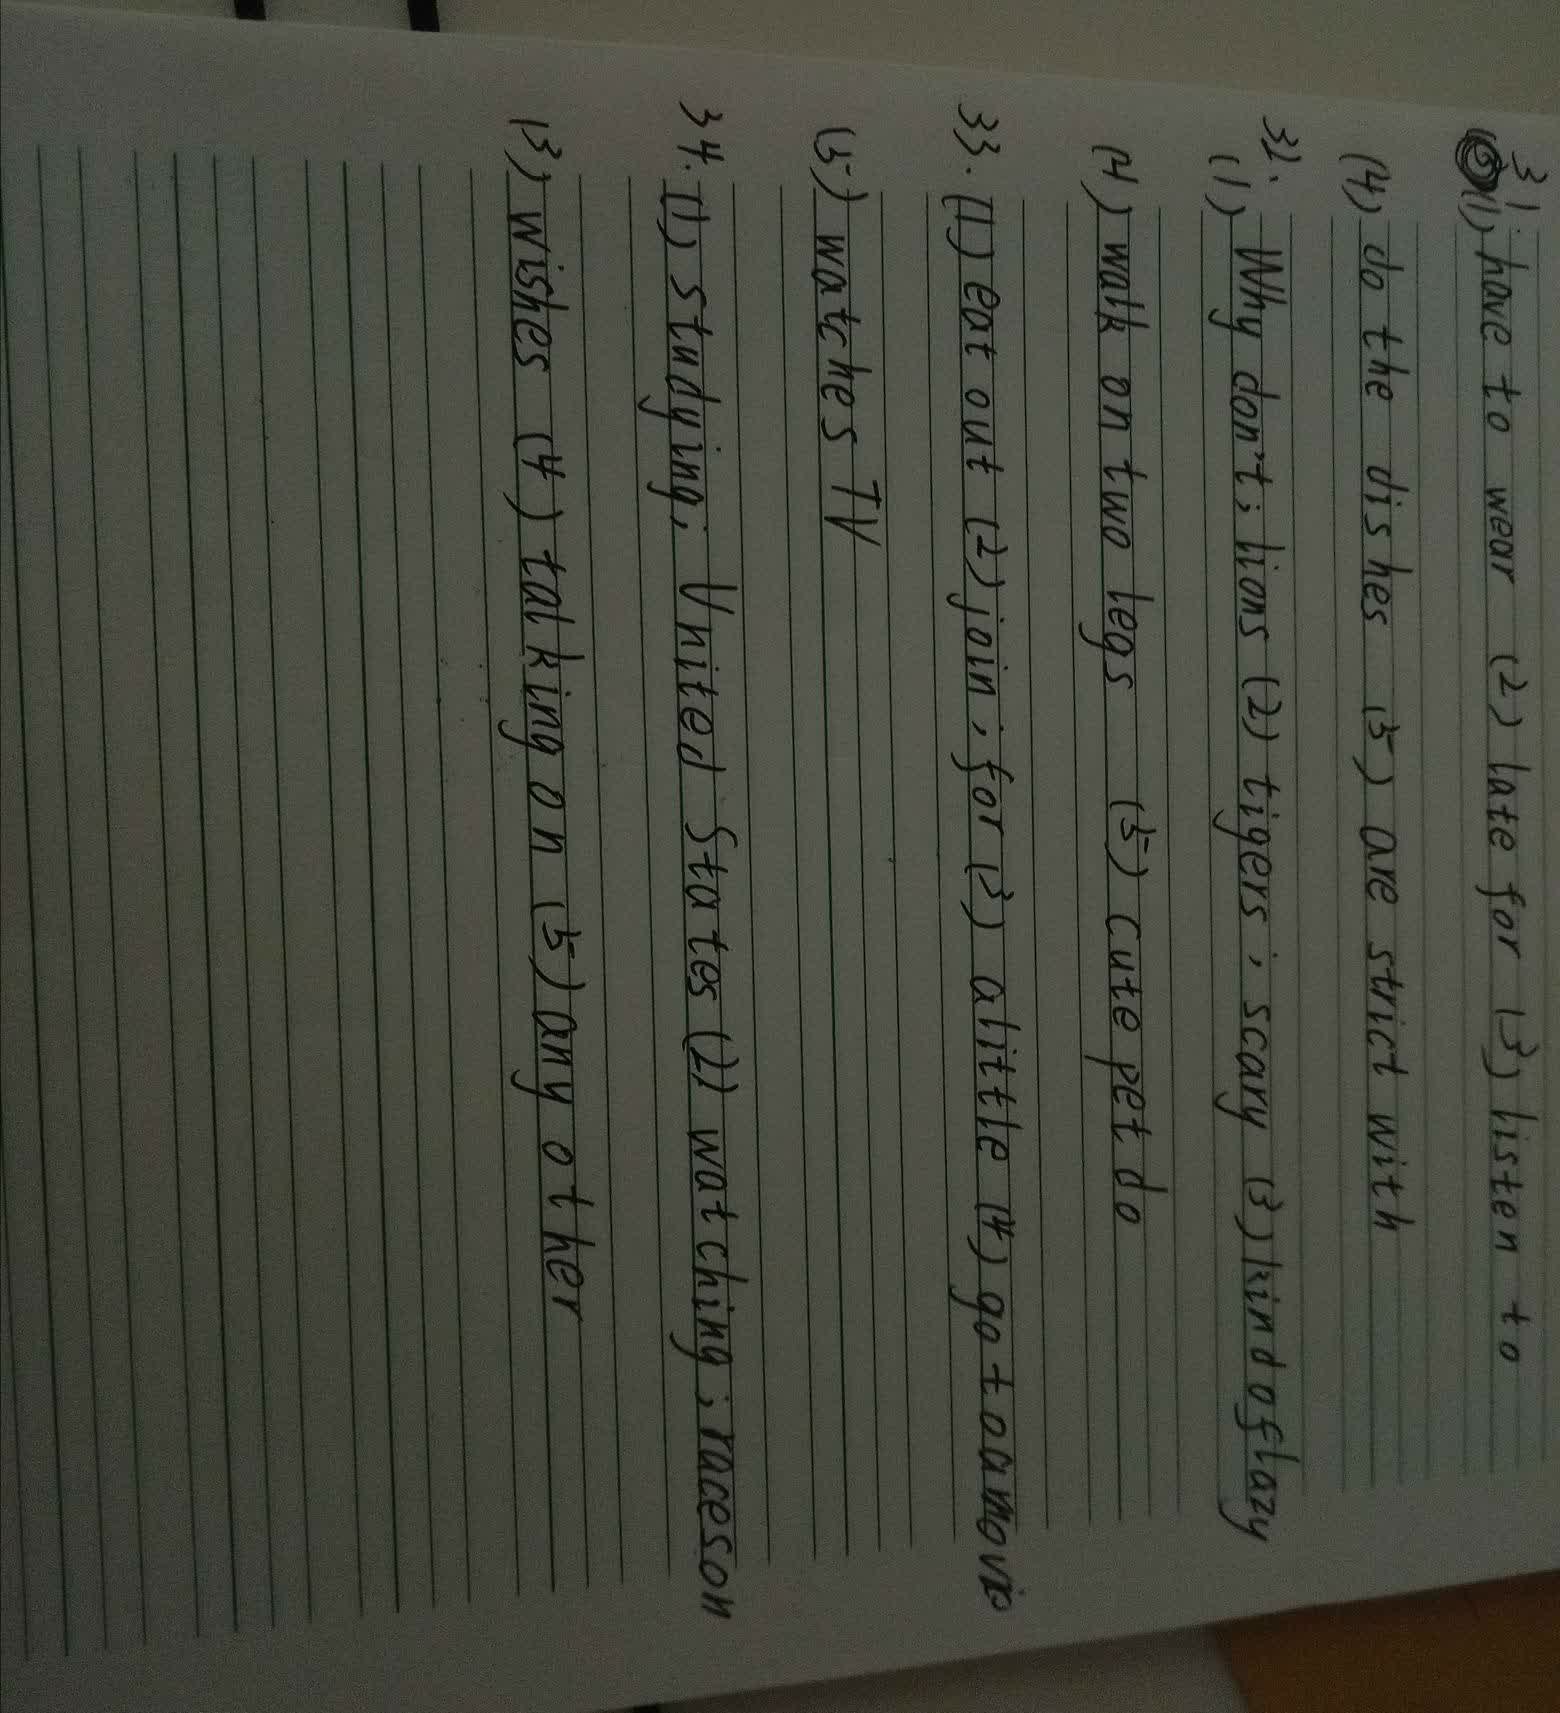 31.
(1) have to wear (2) late for (3) listen to
(4) do the dishes (5) are strict with
32.
(1) Why don't; lions (2) tigers; scary (3) kind of lazy
(4) walk on two legs (5) cute pet do
33. (1) eat out (2) join; for (3) a little (4) go to a movie
(5) watches TV
34. (1) studying; United States (2) watching; races on
(3) wishes (4) talking on (5) any other